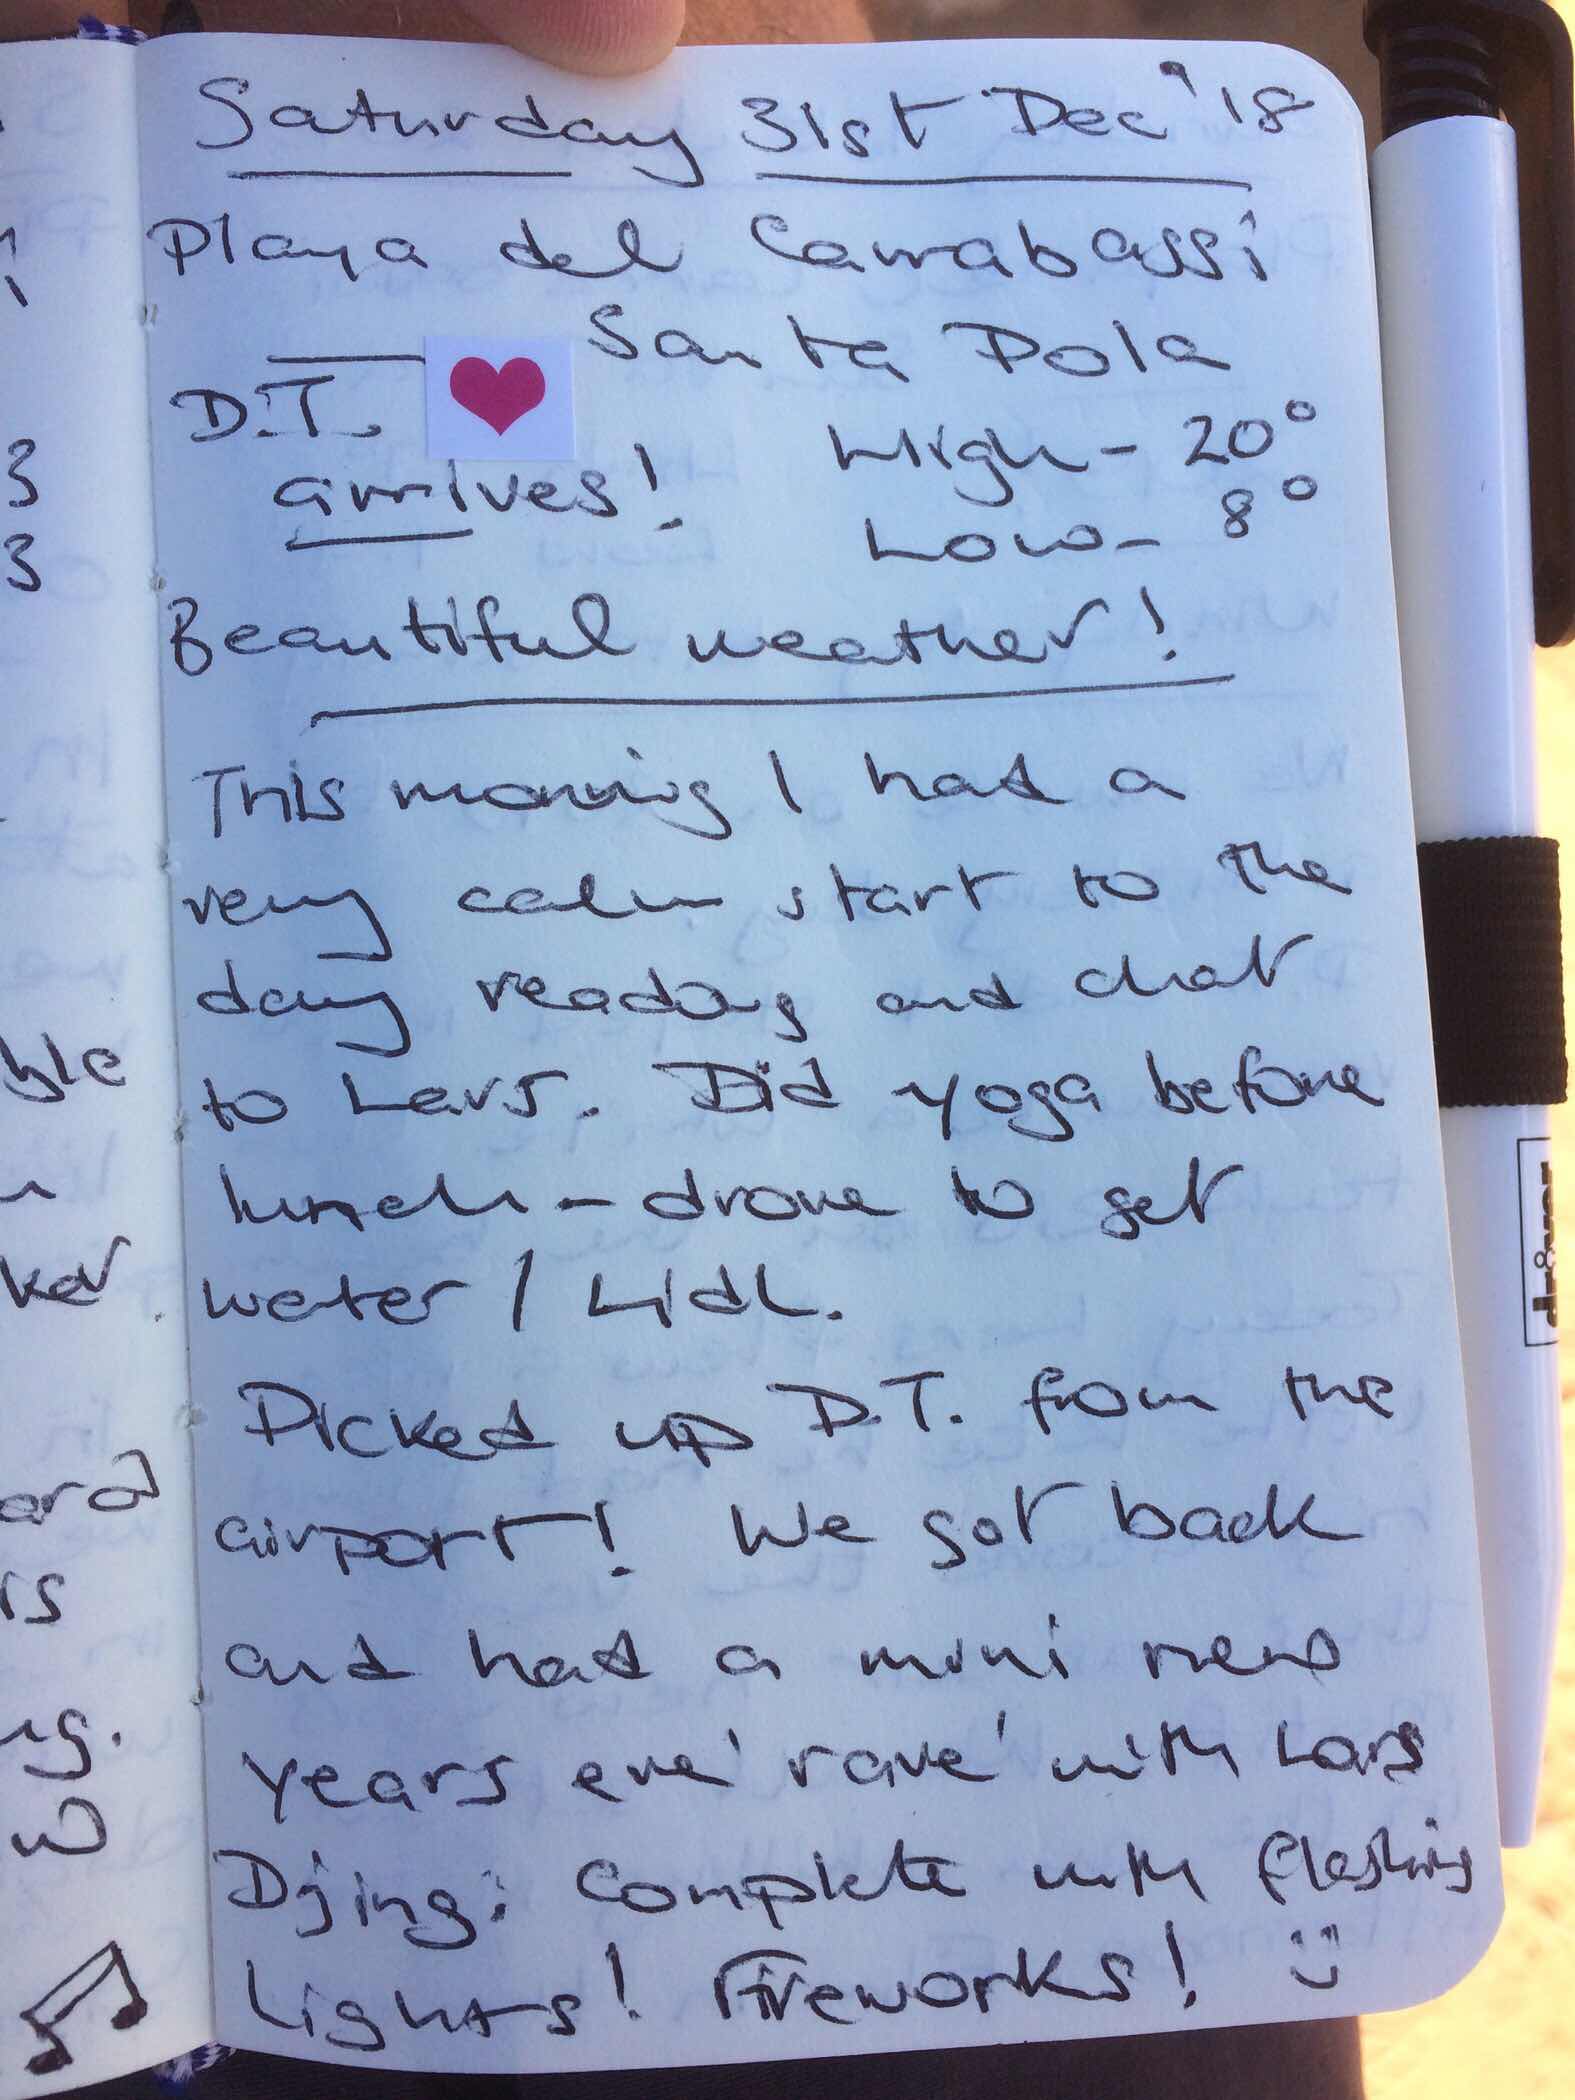 Saturday 31st Dec '18
Playa del Carrabassi
Santa Pola
D.T.
arrives!
High - 20°
Low - 8°
Beautiful weather!
This morning I had a
very calm start to the
day reading and chat
to Lars. Did yoga before
lunch - drove to get
water / Lidl.
Picked up D.T. from the
airport! We got back
and had a mini new
years eve 'rave' with Lars
Djing: Complete with flashing
Lights! Fireworks! :)
3
3
ble
ker
ard
rs
ng.
w
driver